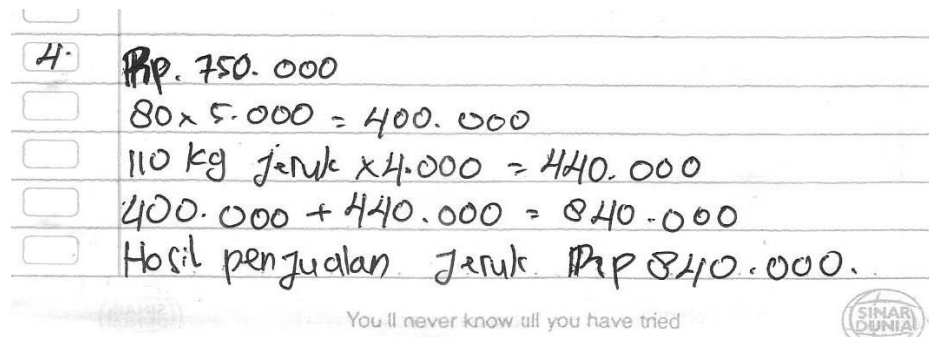 4. Rp. 750.000
80 x 5.000 = 400.000
110 kg jeruk x 4.000 = 440.000
400.000 + 440.000 = 840.000
Hasil penjualan Jeruk Rp 840.000.
You ll never know all you have tried
SINAR
DUNIA